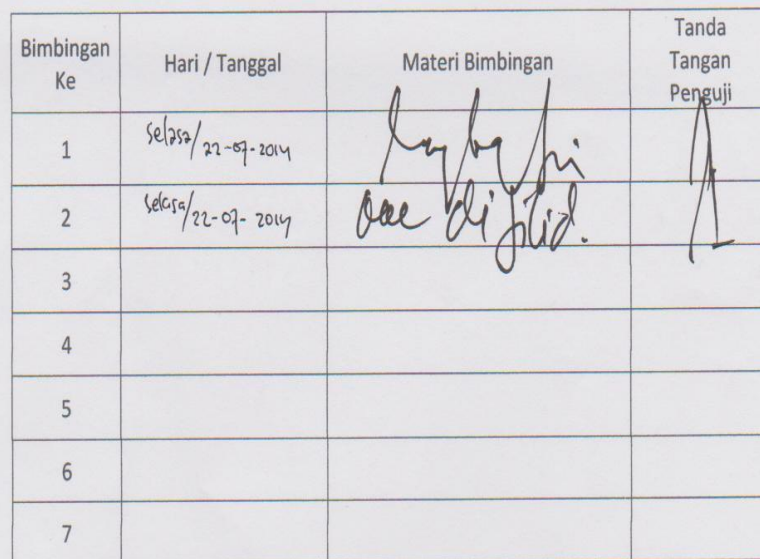 Bimbingan Ke Hari / Tanggal Materi Bimbingan Tanda Tangan Penguji
1 Selasa/22-07-2014
2 Selasa/22-07-2014 acc di jilid.
3
4
5
6
7